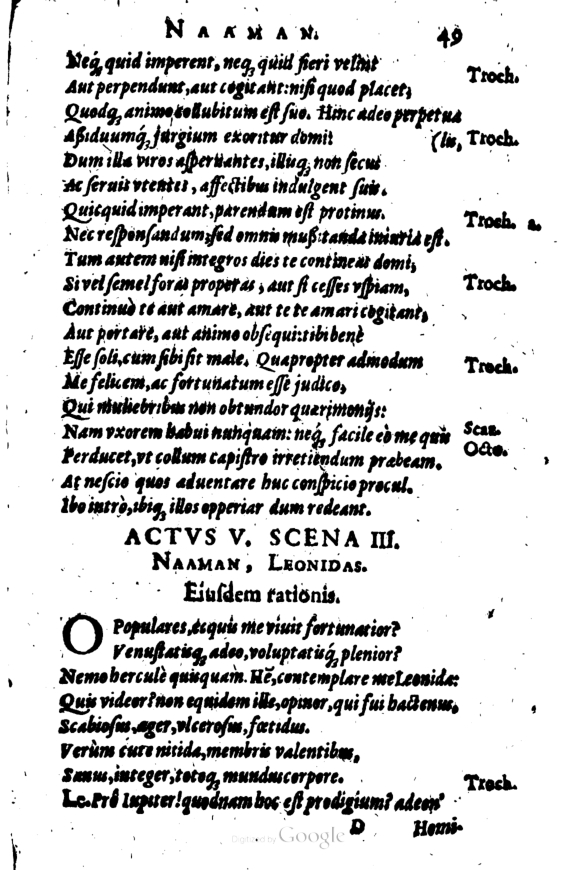 NAAMAN. 49
Neq́ꝫ quid imperent, neqꝫ quid fieri velint
Aut perpendunt, aut cogitant: nisi quod placet, Troch.
Quodqꝫ animo collubitum est suo. Hinc adeo perpetua
Aßiduumq́ꝫ jurgium exoritur domi: (lis, Troch.
Dum illa viros aspernantes, illiusqꝫ non secus
Ac seruis vtentes, affectibus indulgent suis.
Quicquid imperant, parendum est protinus. Troch. a.
Nec responsandum, sed omnis mußitanda iniuria est.
Tum autem nisi integros dies te contineas domi,
Si vel semel foras properas, aut si cesses vspiam, Troch.
Continuò te aut amare, aut te te amari cogitant,
Aut portare, aut animo obsequi: tibi benè
Esse soli, cum sibi sit male. Quapropter admodum Troch.
Me felicem, ac fortunatum esse judico,
Qui muliebribus non obtundor quærimonijs:
Nam vxorem habui nunquam: neq́ꝫ facile eò me quis Scaz.
Perducet, vt collum capistro irretiendum præbeam. Octo.
At nescio quos aduentare huc conspicio procul.
Ibo intrò, ibiqꝫ illos opperiar dum redeant.
ACTVS V. SCENA III.
NAAMAN, LEONIDAS.
Eiusdem rationis.
O Populares, ecquis me viuit fortunatior?
Venustatisqꝫ adeo, voluptatisq́ꝫ plenior?
Nemo herculè quisquam. Hẽ, contemplare me Leonida:
Quis videor? non equidem ille, opinor, qui fui hactenus,
Scabiosus, æger, vlcerosus, fœtidus.
Verùm cute nitida, membris valentibus,
Sanus, integer, totoqꝫ mundus corpore. Troch.
Le. Prô Iupiter! quodnam hoc est prodigium? adeon'
D Homi-
Digitized by Google